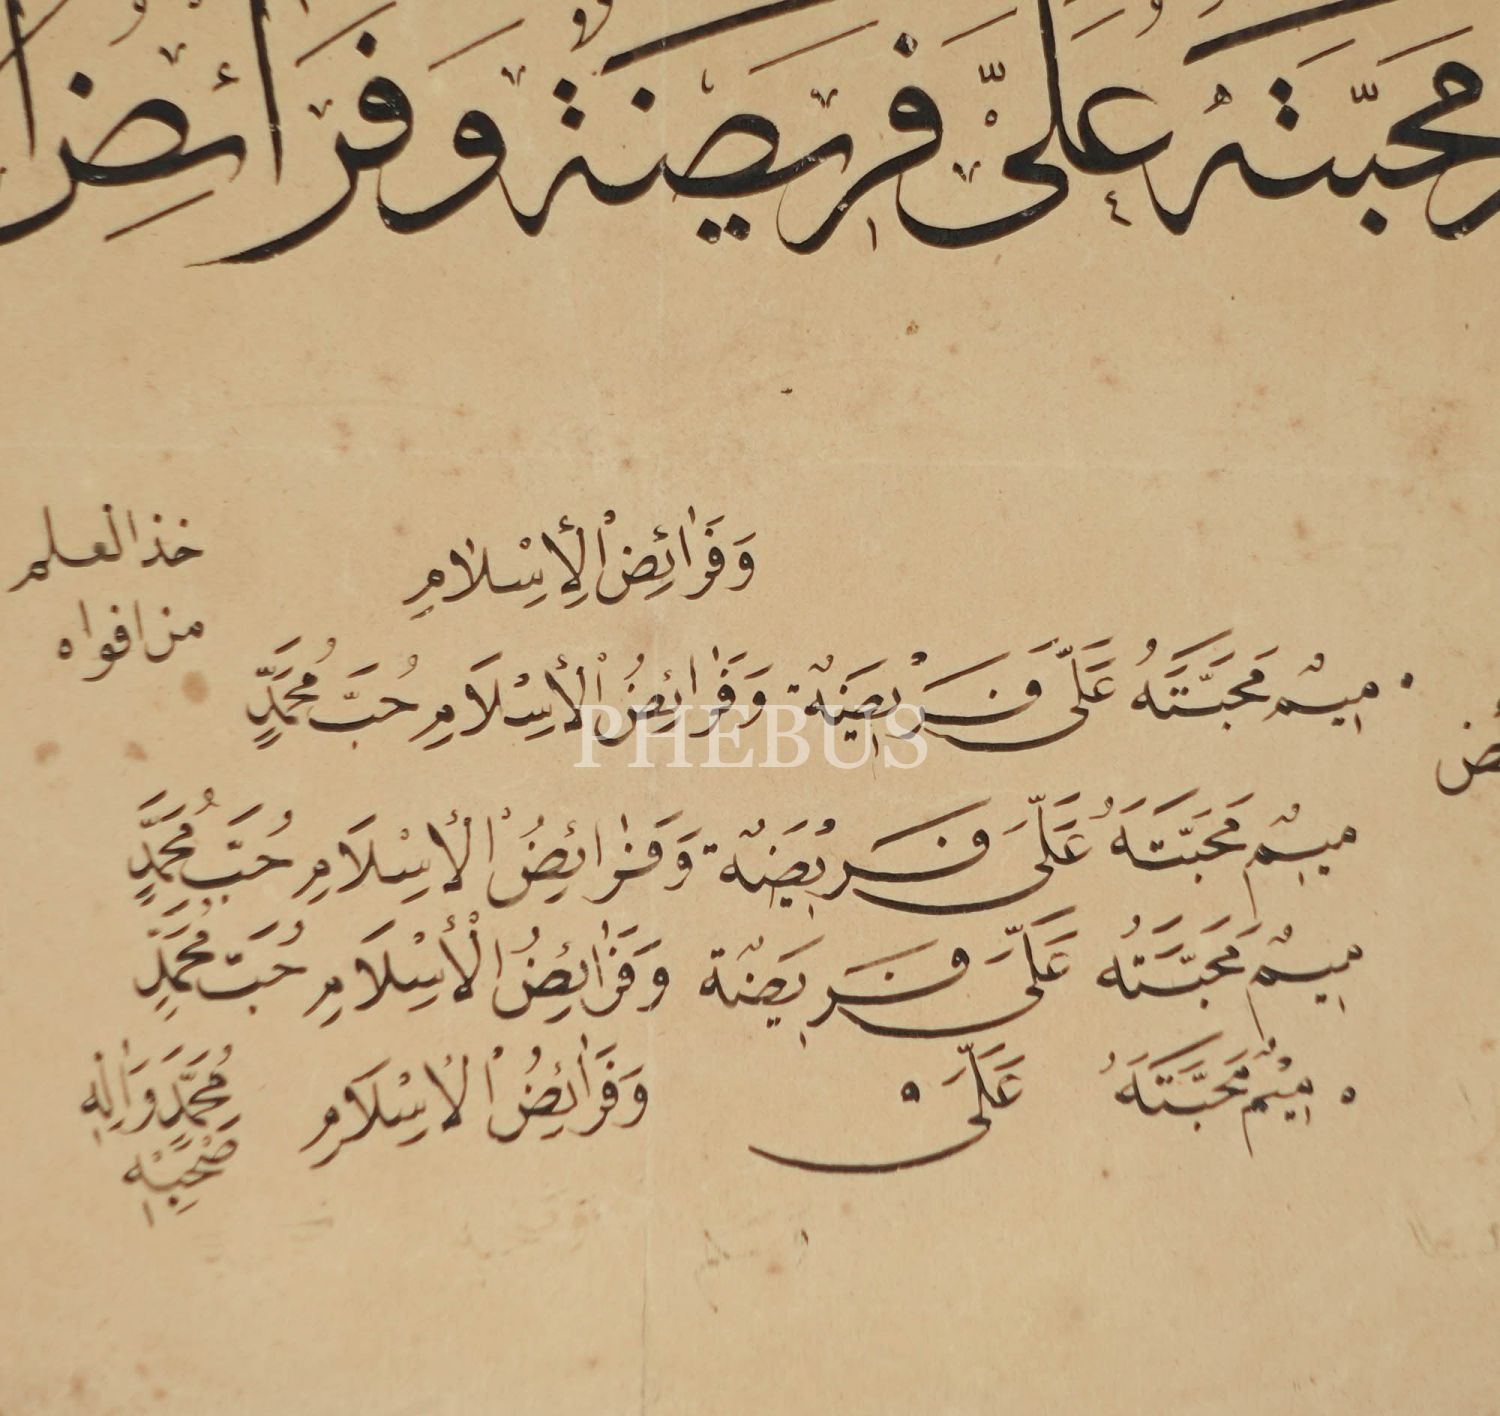 محبّتهُ عَلىّ فريضة وَفَرَائض
خذ العلم
من افواه
وَفَرٰائِضْ الْأِسْلٰامِ
مِيمْ مَحَبَّتَهُ عَلَىّ فَرِيْضَةٌ وَفَرٰائِضُ الْأِسْلَامِ حُبَّ مُحَمَّدٍ
ئض
ميمْ مَحَبَّتَهُ عَلَىّ فَرِيْضَةٌ وَفَرٰائِضُ الْأِسْلَامِ حُبَّ مُحَمَّدٍ
مِيمْ مَحَبَّتَهُ عَلَىّ فَرِيضَةٌ وَفَرٰائِضُ الْأِسْلَامِ حُبَّ مُحَمَّدٍ
مِيمْ مَحَبَّتَهُ عَلَىّ وَفَرٰائِضُ الْأِسْلَامِ مُحَمَّدٍ وَاٰلِهِ
صَحْبِهِ
PHEBUS